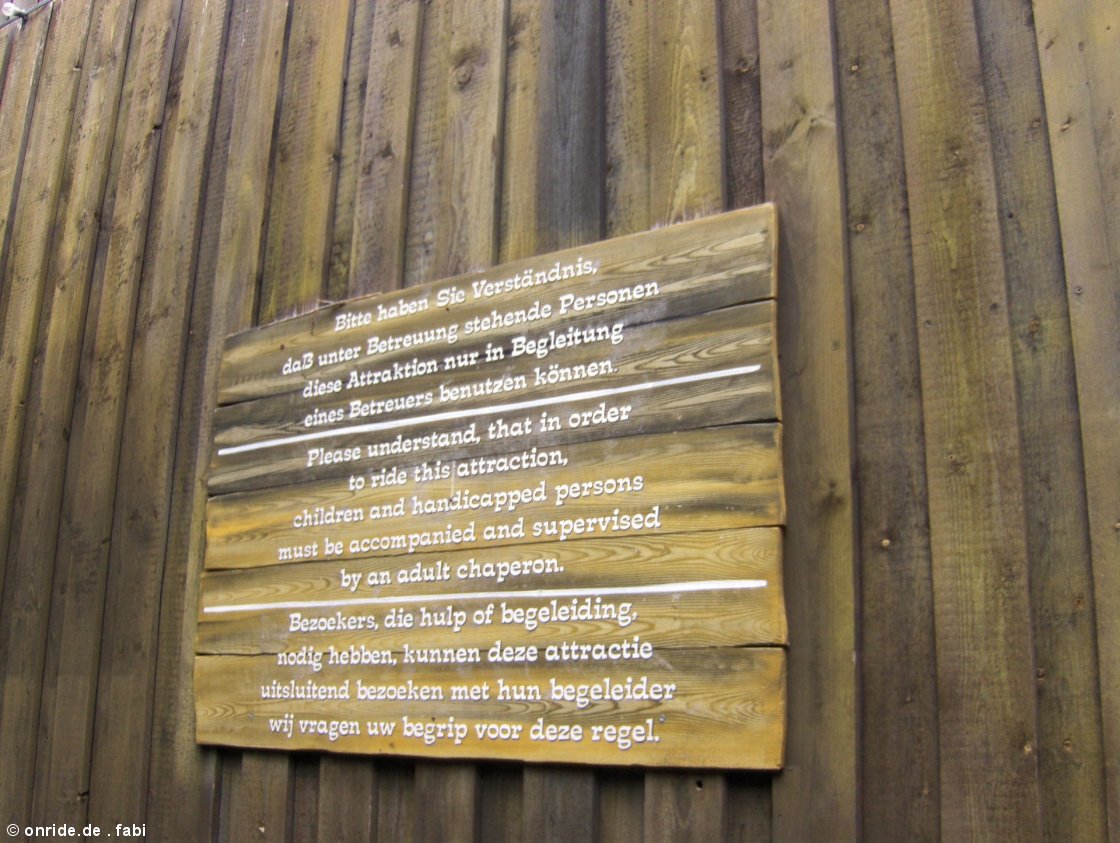 Bitte haben Sie Verständnis,
daß unter Betreuung stehende Personen
diese Attraktion nur in Begleitung
eines Betreuers benutzen können.
Please understand, that in order
to ride this attraction,
children and handicapped persons
must be accompanied and supervised
by an adult chaperon.
Bezoekers, die hulp of begeleiding,
nodig hebben, kunnen deze attractie
uitsluitend bezoeken met hun begeleider
wij vragen uw begrip voor deze regel.
© onride.de . fabi